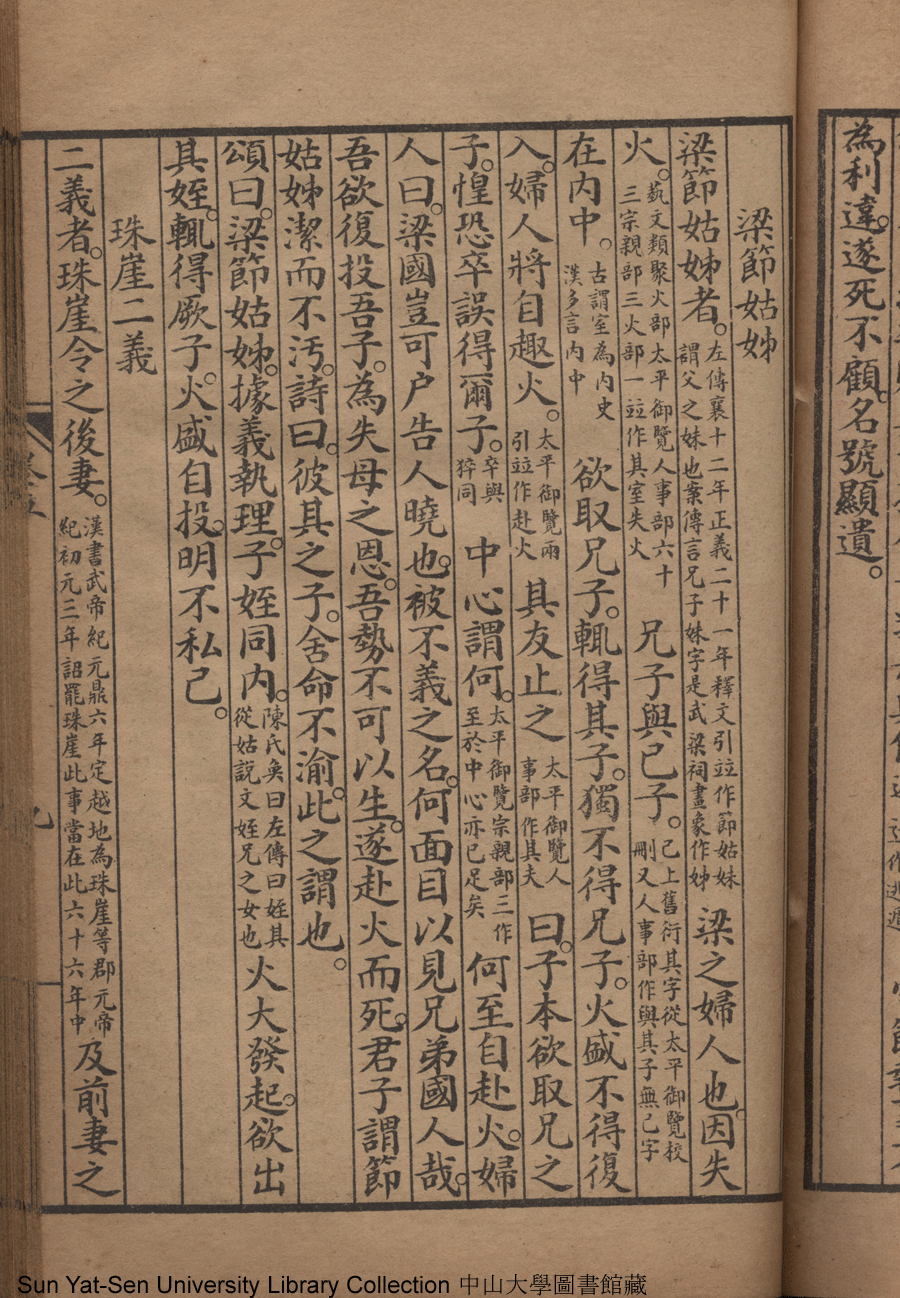 為利違。遂死不顧。名號顯遺。
梁節姑姊
梁節姑姊者。左傳襄十二年正義二十一年釋文引竝作節姑妹謂父之妹也案傳言兄子妹字是武梁祠畫象作姊梁之婦人也。因失
火。蓺文類聚火部太平御覽人事部六十三宗親部三火部一竝作其室失火兄子與己子。己上舊衍其字從太平御覽校刪又人事部作與其子無己字
在内中。古謂室為内史漢多言内中欲取兄子。輒得其子。獨不得兄子。火盛不得復
入。婦人將自趣火。太平御覽兩引竝作赴火其友止之太平御覽人事部作其夫曰。子本欲取兄之
子。惶恐卒誤得爾子。卒與猝同中心謂何。太平御覽宗親部三作至於中心亦已足矣何至自赴火。婦
人曰。梁國豈可户告人曉也。被不義之名。何面目以見兄弟國人哉。
吾欲復投吾子。為失母之恩。吾勢不可以生。遂赴火而死。君子謂節
姑姊潔而不汚。詩曰。彼其之子。舍命不渝。此之謂也。
頌曰。梁節姑姊。據義執理。子姪同内。陳氏奐曰左傳曰姪其從姑說文姪兄之女也火大發起。欲出
其姪。輒得厥子。火盛自投。明不私己。
珠崖二義
二義者。珠崖令之後妻。漢書武帝紀元鼎六年定越地為珠崖等郡元帝紀初元三年詔罷珠崖此事當在此六十六年中及前妻之
Sun Yat-Sen University Library Collection 中山大學圖書館藏